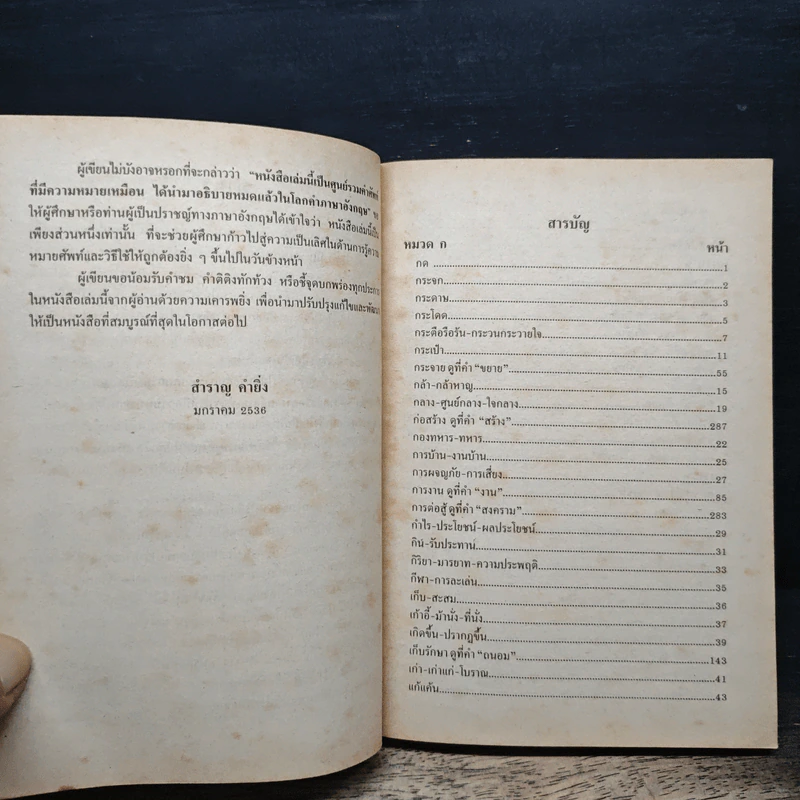 ผู้เขียนไม่บังอาจหรอกที่จะกล่าวว่า "หนังสือเล่มนี้เป็นศูนย์รวมคำศัพท์
ที่มีความหมายเหมือน ได้นำมาอธิบายหมดแล้วในโลกคำภาษาอังกฤษ"
ให้ผู้ศึกษาหรือท่านผู้เป็นปราชญ์ทางภาษาอังกฤษได้เข้าใจว่า หนังสือเล่มนี้เป็น
เพียงส่วนหนึ่งเท่านั้น ที่จะช่วยผู้ศึกษาก้าวไปสู่ความเป็นเลิศในด้านการรู้ความ
หมายศัพท์และวิธีใช้ให้ถูกต้องยิ่ง ๆ ขึ้นไปในวันข้างหน้า
ผู้เขียนขอน้อมรับคำชม คำติติงทักท้วง หรือชี้จุดบกพร่องทุกประการ
ในหนังสือเล่มนี้จากผู้อ่านด้วยความเคารพยิ่ง เพื่อนำมาปรับปรุงแก้ไขและพัฒนา
ให้เป็นหนังสือที่สมบูรณ์ที่สุดในโอกาสต่อไป
สำราญ คำยิ่ง
มกราคม 2536
สารบัญ
หมวด ก หน้า
กด 1
กระจก 2
กระดาษ 3
กระโดด 5
กระตือรือร้น-กระวนกระวายใจ 7
กระเป๋า 11
กระจาย ดูที่คำ "ขยาย" 55
กล้า-กล้าหาญ 15
กลาง-ศูนย์กลาง-ใจกลาง 19
ก่อสร้าง ดูที่คำ "สร้าง" 287
กองทหาร-ทหาร 22
การบ้าน-งานบ้าน 25
การผจญภัย-การเสี่ยง 27
การงาน ดูที่คำ "งาน" 85
การต่อสู้ ดูที่คำ "สงคราม" 283
กำไร-ประโยชน์-ผลประโยชน์ 29
กิน-รับประทาน 31
กิริยา-มารยาท-ความประพฤติ 33
กีฬา-การละเล่น 35
เก็บ-สะสม 36
เก้าอี้-ม้านั่ง-ที่นั่ง 37
เกิดขึ้น-ปรากฏขึ้น 39
เก็บรักษา ดูที่คำ "ถนอม" 143
เก่า-เก่าแก่-โบราณ 41
แก้แค้น 43